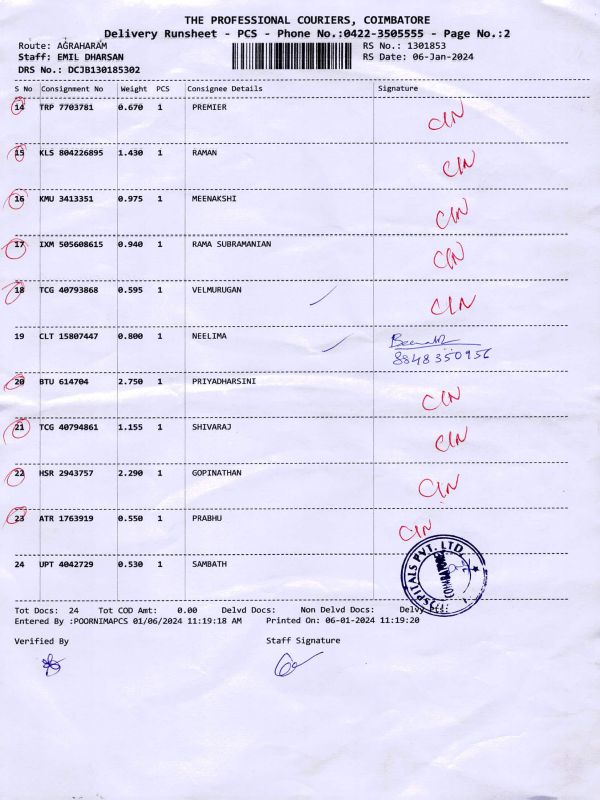 THE PROFESSIONAL COURIERS, COIMBATORE
Delivery Runsheet - PCS - Phone No.:0422-3505555 - Page No.:2
Route: AGRAHARAM RS No.: 1301853
Staff: EMIL DHARSAN RS Date: 06-Jan-2024
DRS No.: DCJB130185302
S No Consignment No Weight PCS Consignee Details Signature
14 TRP 7703781 0.670 1 PREMIER CIN
15 KLS 804226895 1.430 1 RAMAN CIN
16 KMU 3413351 0.975 1 MEENAKSHI CIN
17 IXM 505608615 0.940 1 RAMA SUBRAMANIAN CIN
18 TCG 40793868 0.595 1 VELMURUGAN CIN
19 CLT 15807447 0.800 1 NEELIMA
8848350956
20 BTU 614704 2.750 1 PRIYADHARSINI CIN
21 TCG 40794861 1.155 1 SHIVARAJ CIN
22 HSR 2943757 2.290 1 GOPINATHAN CIN
23 ATR 1763919 0.550 1 PRABHU CIN
24 UPT 4042729 0.530 1 SAMBATH
PVT. LTD
Tot Docs: 24 Tot COD Amt: 0.00 Delvd Docs: Non Delvd Docs:
Entered By :POORNIMAPCS 01/06/2024 11:19:18 AM Printed On: 06-01-2024 11:19:20
Verified By Staff Signature